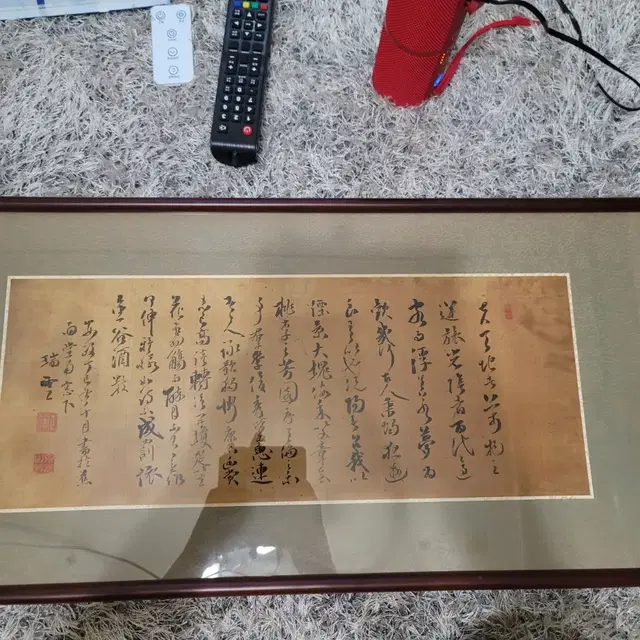 夫天地者萬物之
逆旅光陰者百代之過
客而浮生若夢為
歡幾何古人秉燭夜遊
良有以也況陽春召我以
煙景大塊假我以文章會
桃李之芳園序天倫之樂
事群季俊秀皆為惠連
吾人詠歌獨慚康樂幽賞
未已高談轉清開瓊筵以坐
花飛羽觴而醉月不有佳作
何伸雅懷如詩不成罰依
金谷酒數
十月書於
雨堂南窗下